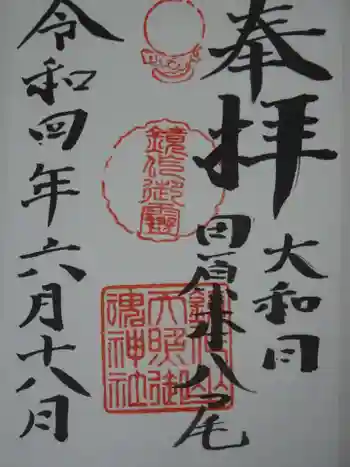 奉拝
大和国
田原本八尾
鏡作御霊
鏡作坐
天照御
魂神社
令和四年六月十八日